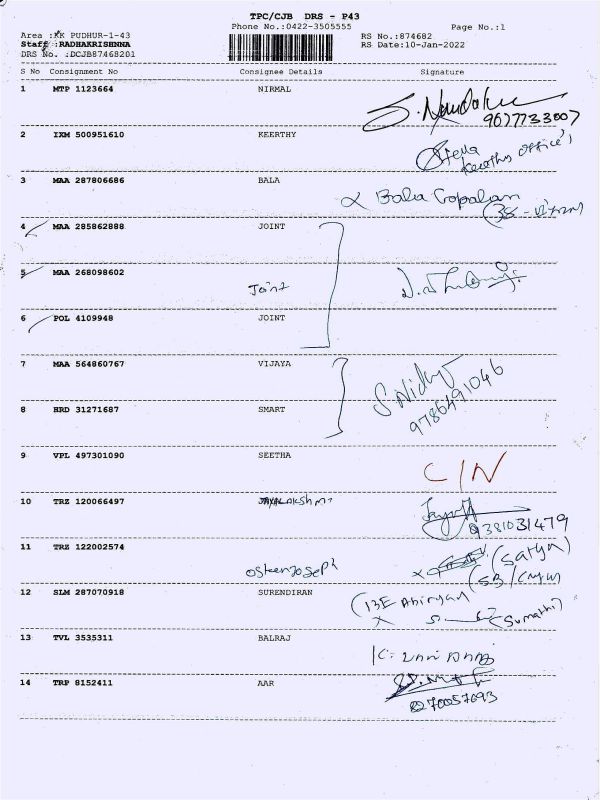 TPC/CJB DRS - P43
Phone No.:0422-3505555
Page No.:1
Area :KK PUDHUR-1-43
RS No.:874682
Staff :RADHAKRISHNNA
RS Date:10-Jan-2022
DRS No. :DCJB87468201
S No Consignment No Consignee Details Signature
1 MTP 1123664 NIRMAL
9677733007
2 IXM 500951610 KEERTHY
Keerthy office
3 MAA 287806686 BALA
Bala Gopalan
4 MAA 285862888 JOINT
5 MAA 268098602
Joint
6 POL 4109948 JOINT
7 MAA 564860767 VIJAYA
9786491046
8 HRD 31271687 SMART
9 VPL 497301090 SEETHA
C/N
10 TRZ 120066497
9381031479
11 TRZ 122002574
(Satya)
12 SLM 287070918 SURENDIRAN
(Sumathi)
13 TVL 3535311 BALRAJ
14 TRP 8152411 AAR
8270057693